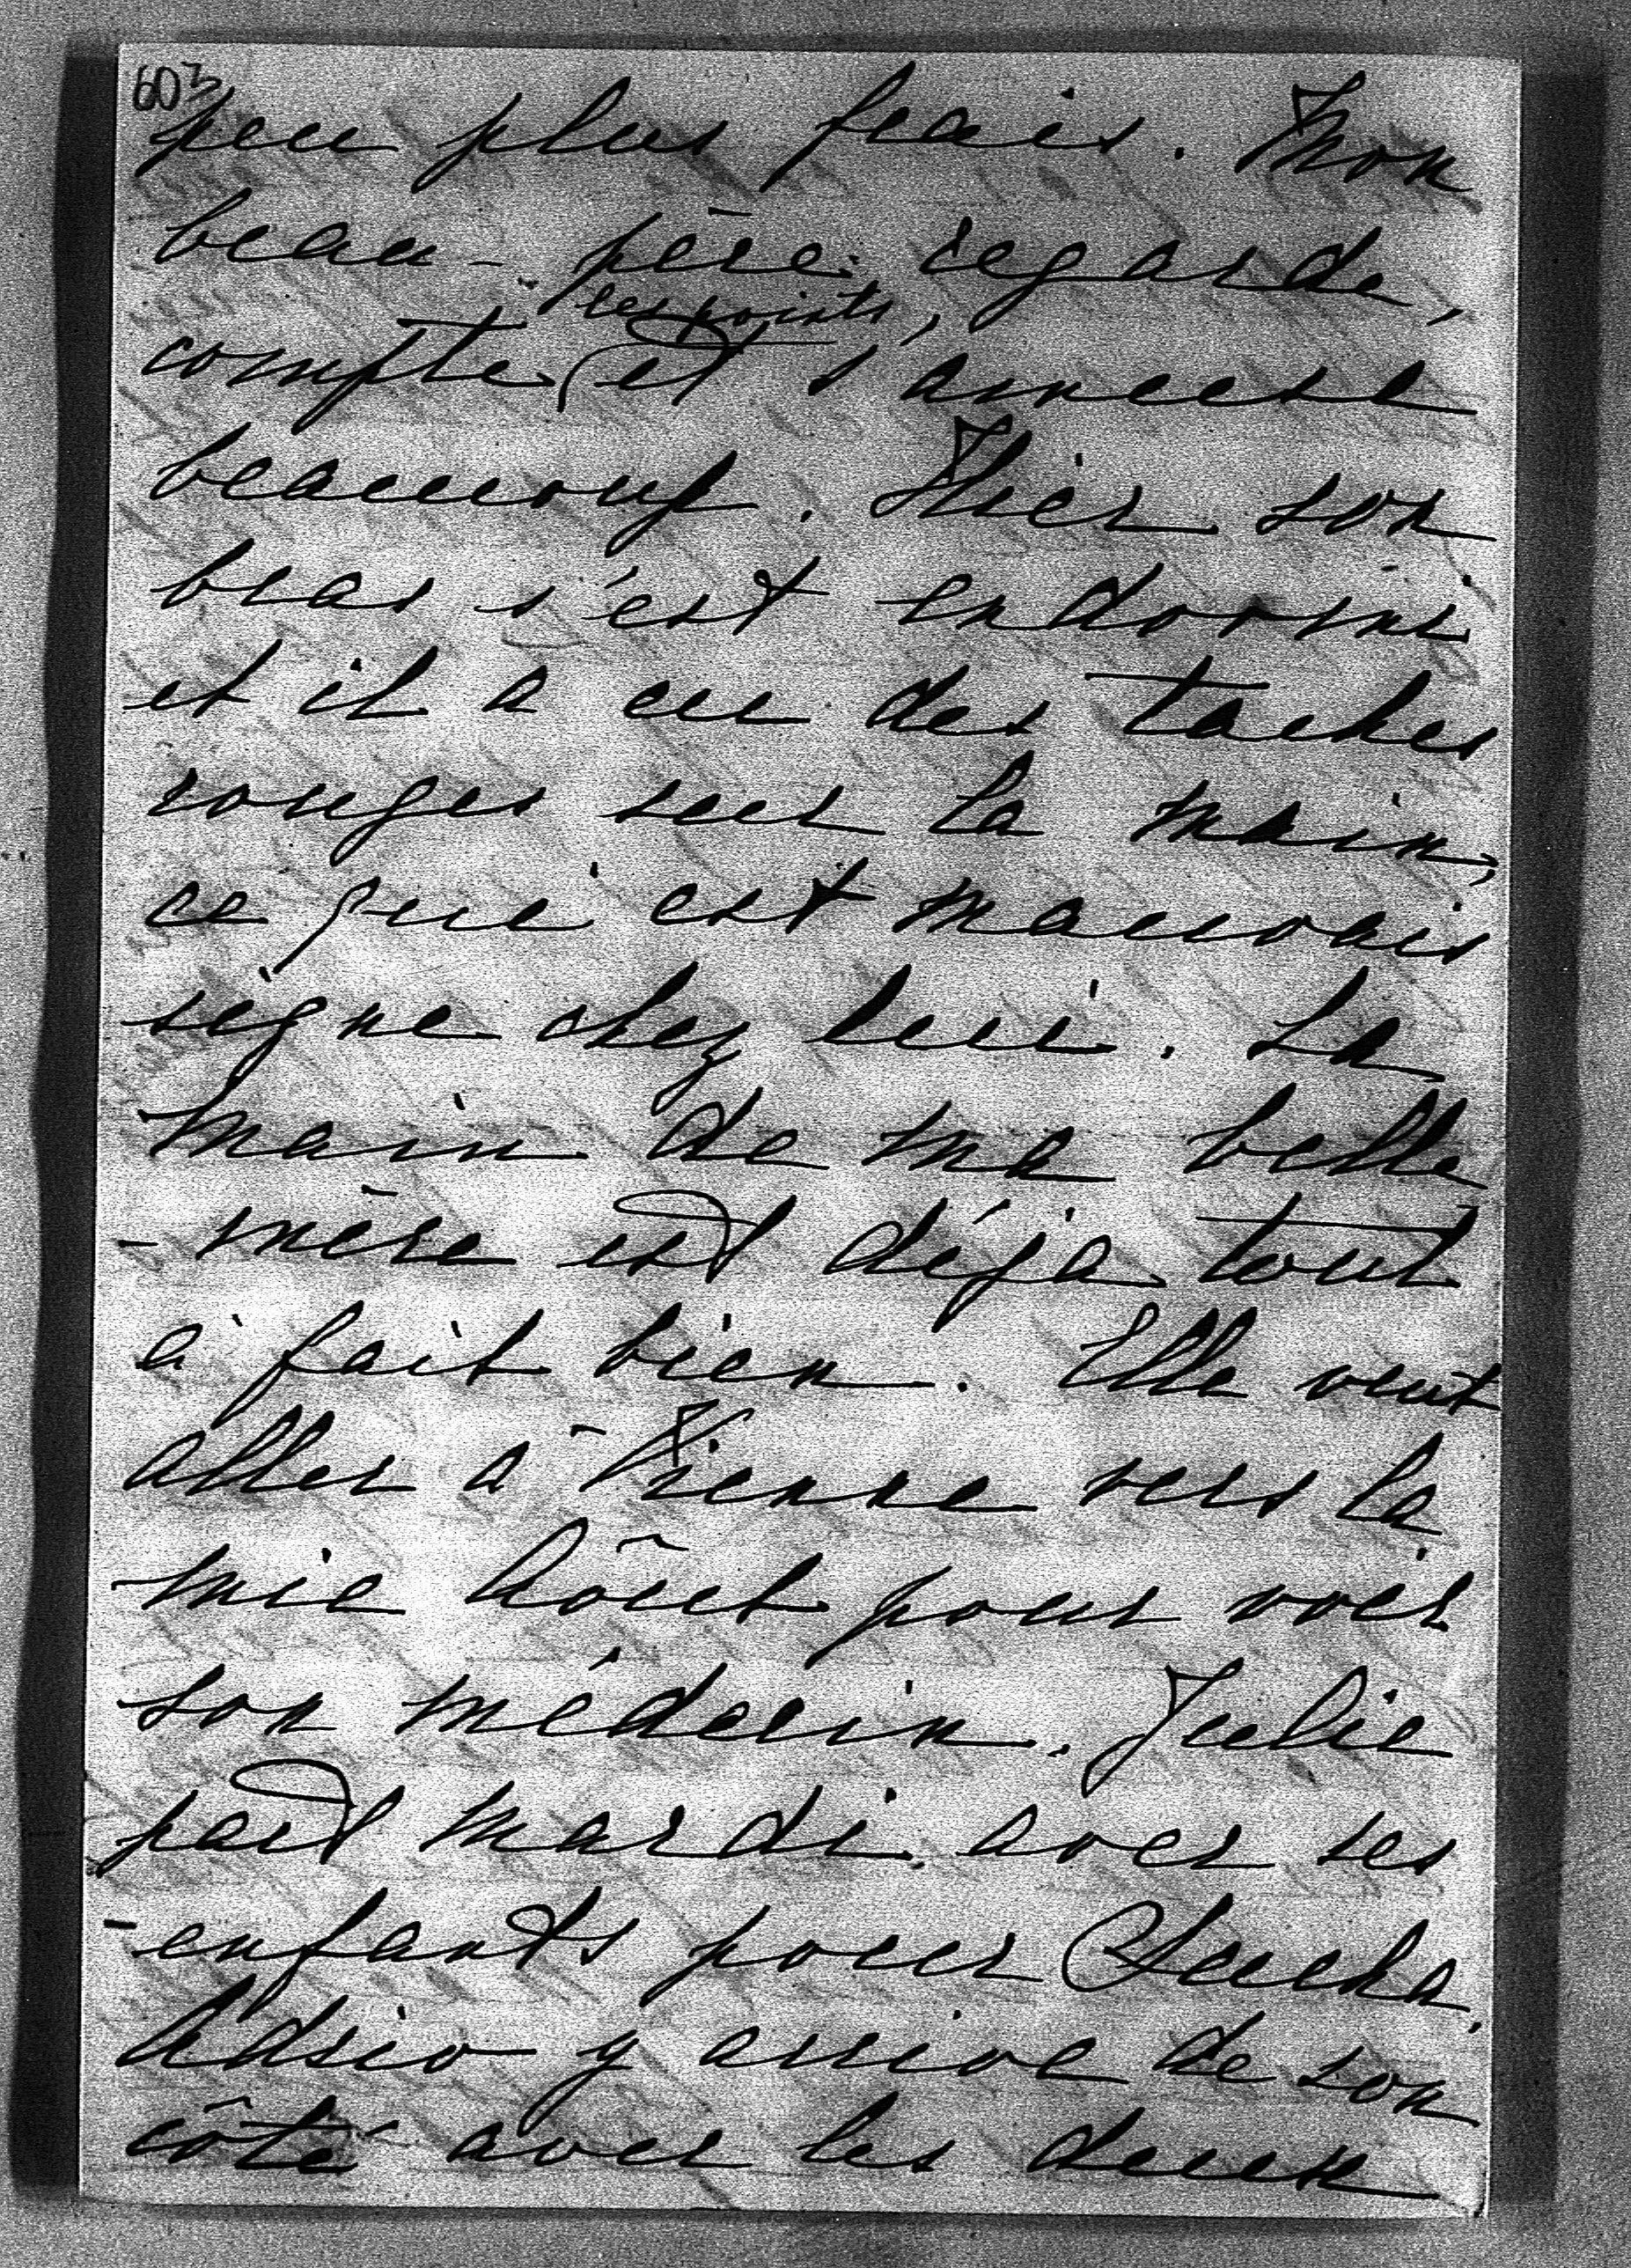 603
peu plus frais. Mon
beau-père regarde,
les points,
compte et s'amuse
beaucoup. Hier son
bras s'est endormi
et il a eu des taches
rouges sur la main,
ce qui est mauvais
signe chez lui. La
main de ma belle
-mère est déjà tout
à fait bien. Elle veut
aller à Vienne vers la
mie Août pour voir
son médecin. Julie
part mardi avec ses
enfants pour
y arrive de son
côté avec les deux